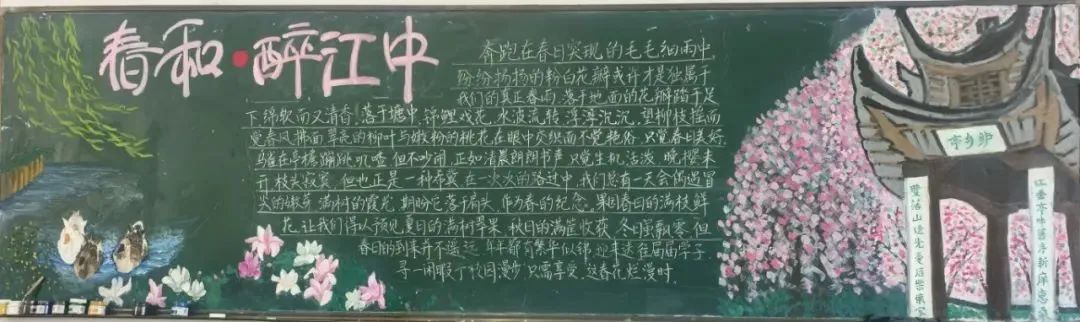 春和·醉江中
奔跑在春日实现的毛毛细雨中,
纷纷扬扬的粉白花瓣或许才是独属于
我们的真正春雨,落于地面的花瓣踏于足
下绵软而又清香,落于塘中,锦鲤戏花,水波流转,浮浮沉沉,望柳枝摇而
觉春风拂面,翠亮的柳叶与嫩粉的桃花在眼中交织而不觉艳俗,只觉春日美好,
鸟雀在亭檐蹦跳叽喳,但不吵闹,正如清晨朗朗书声,只觉生机活泼,晚樱未
开,枝头寂寞,但也正是一种希冀,在一次次的路过中,我们总有一天会偶遇冒
尖的嫩芽,满树的霞光,期盼它落于肩头,作为春的纪念,果因春日的满枝鲜
花,让我们得以预见夏日的满树翠果,秋日的满筐收获,冬日虽飘零,但
春日的到来并不遥远,年年都有繁华似锦,迎来送往届届学子,
寻一闲暇于校园漫步,只需享受,这春花烂漫时.
亭乡鲈